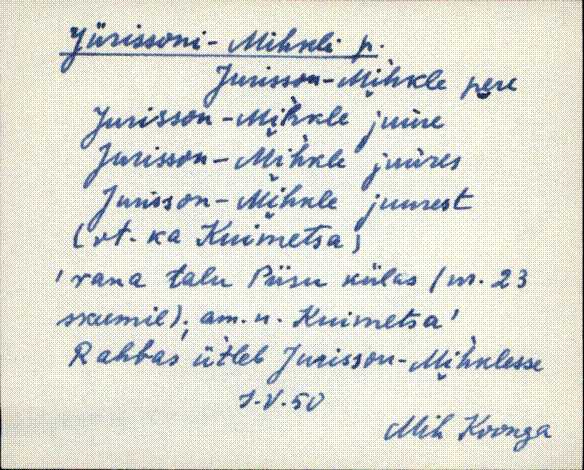 Jürissoni-Mihkli p.
Jurisson-Mihkle pere
Jurisson-Mihkle juure
Jurisson-Mihkle juures
Jurisson-Mihkle juurest
(vt. ka Kuimetsa)
'vana talu Piisu külas (nr. 23
skeemil); am. n. Kuimetsa'
Rahbas ütleb Jurisson-Mihklesse
1.V.50
Mih Koonga